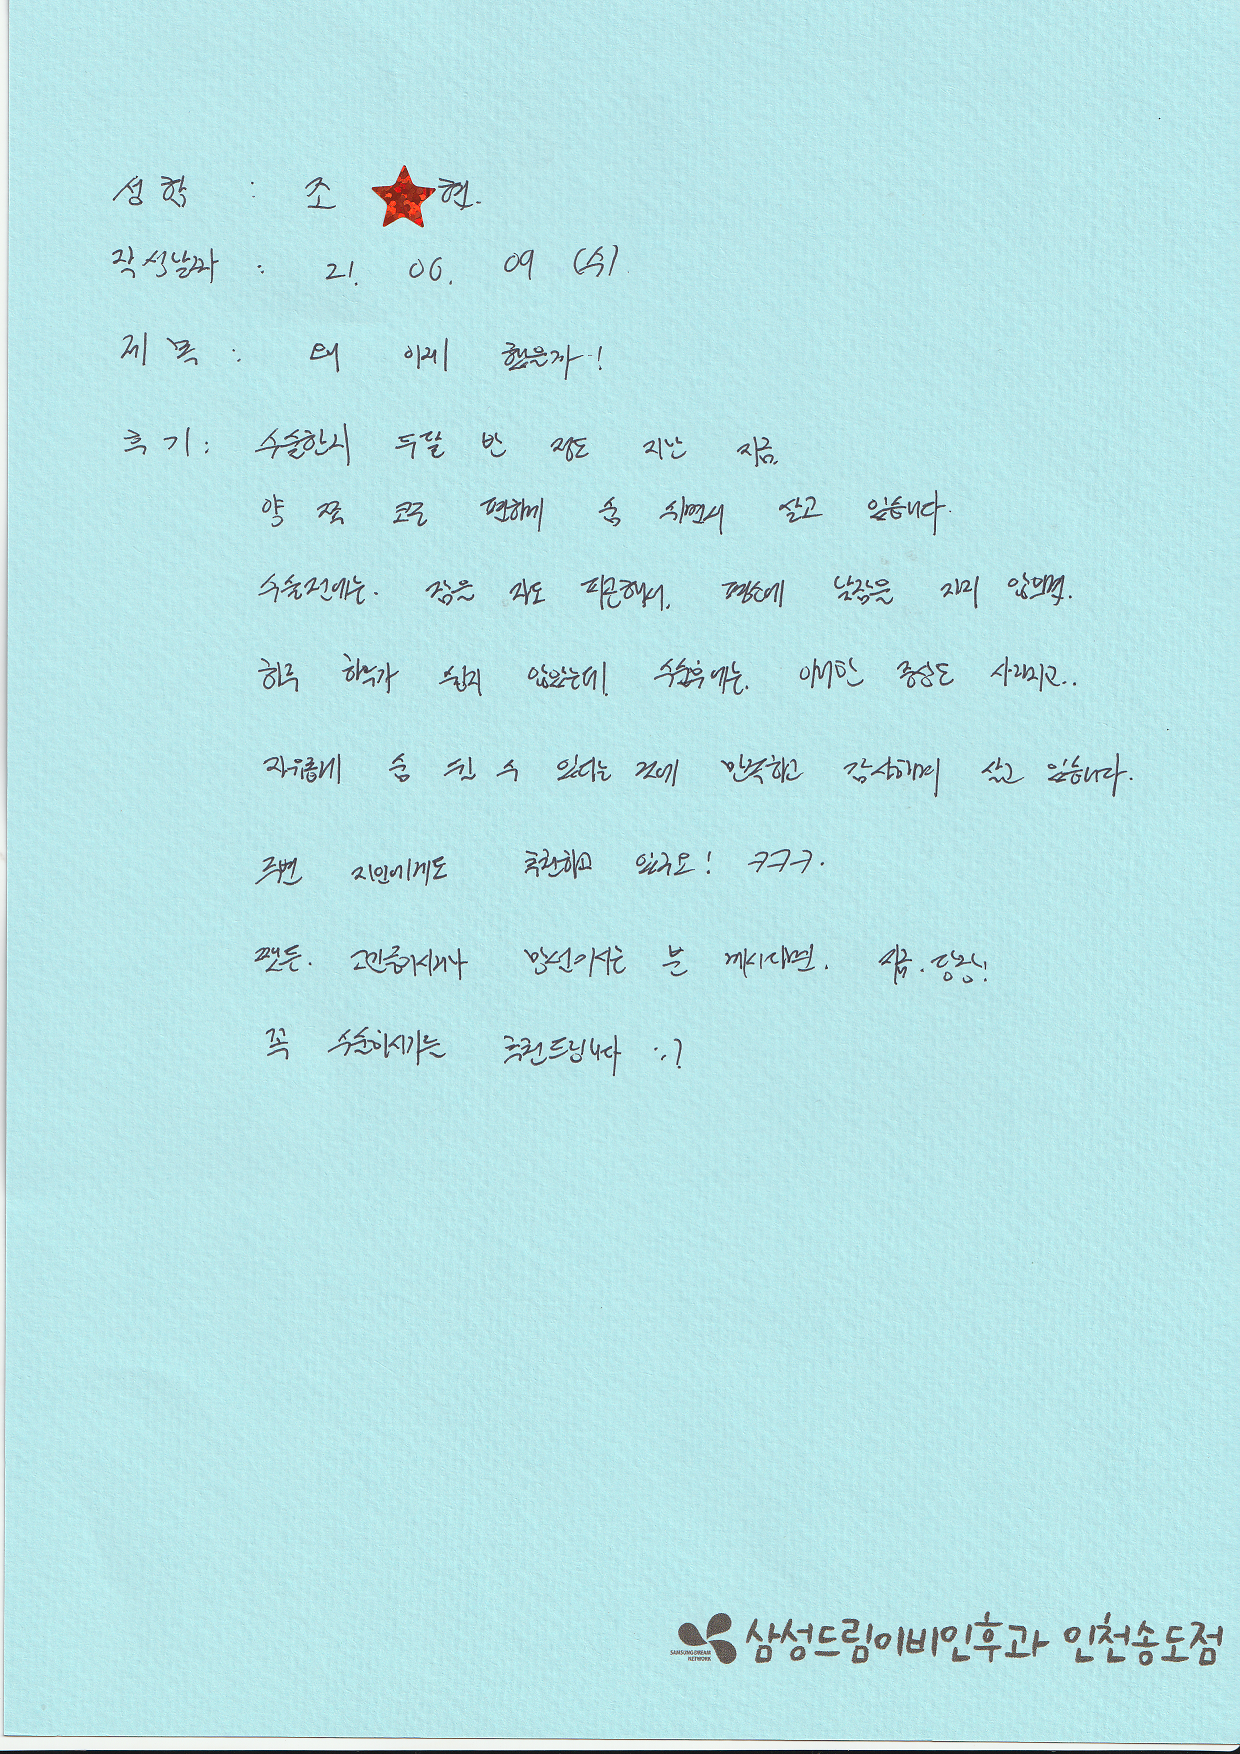 성함 : 조 현.
작성날짜 : 21. 06. 09 (수).
제 목 : 왜 이제 했을까..!
후기 : 수술한지 두달 반 정도 지난 지금,
양 쪽 코로 편하게 숨 쉬면서 살고 있습니다.
수술전에는. 잠을 자도 피곤해서, 평소에 낮잠을 자지 않으면.
하루 하루가 쉽지 않았는데, 수술후에는, 이러한 증상도 사라지고..
자유롭게 숨 쉴 수 있다는 것에 만족하고 감사하며 살고 있습니다.
주변 지인에게도 추천하고 있구요! ㅋㅋㅋ.
쨋든. 고민중이시거나 망설이시는 분 계시다면. 지금. 당장!
꼭 수술하시기를 추천드립니다
SAMSUNG DREAM NETWORK
삼성드림이비인후과 인천송도점